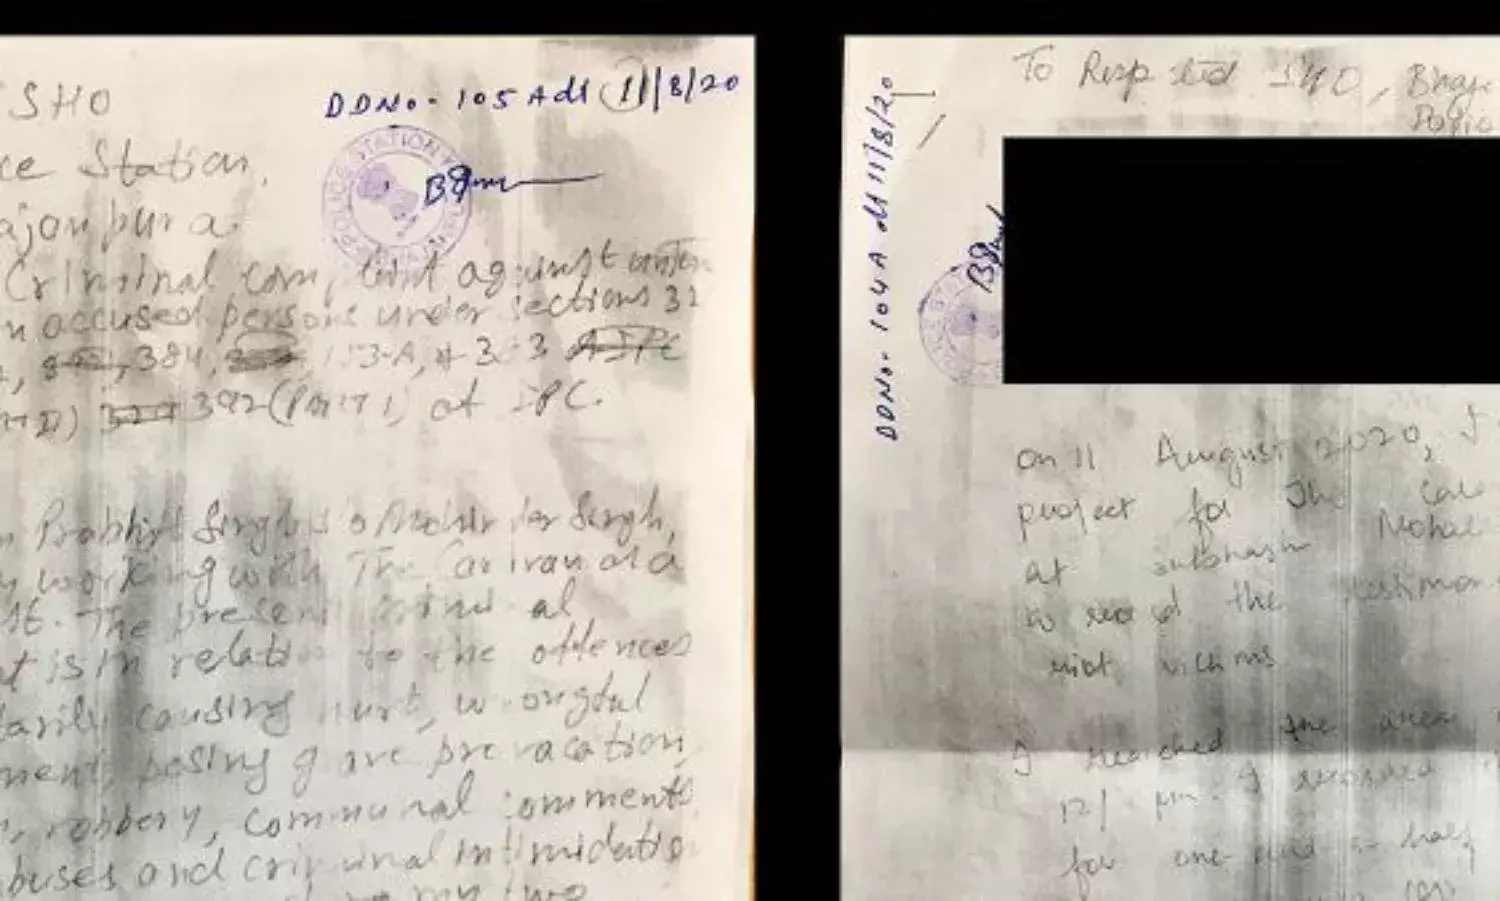 SHO
DDNo. 105A dt 11/8/20
ce Station,
ajanpura
POLICE STATION
Criminal complaint against
n accused persons under sections 32
384, 153-A, + 3 3
392 (Part 1) of IPC.
Prabhjit Singh s/o Mohinder Singh,
working with The Caravan as a
The present criminal
t is in relation to the offences
tarily causing hurt, wrongful
ment, posing grave provacation,
robbery, communal comments
buses and criminal intimidatio
my two
To Resp ted SHO, Bhaja
Polic
DDNo. 104A dt 11/8/20
on 11 August 2020, I
project for The Cara
at subhash Mohal
to record the testimon
riot victims
I reached the area
121 pm. I recorded
for one and a half